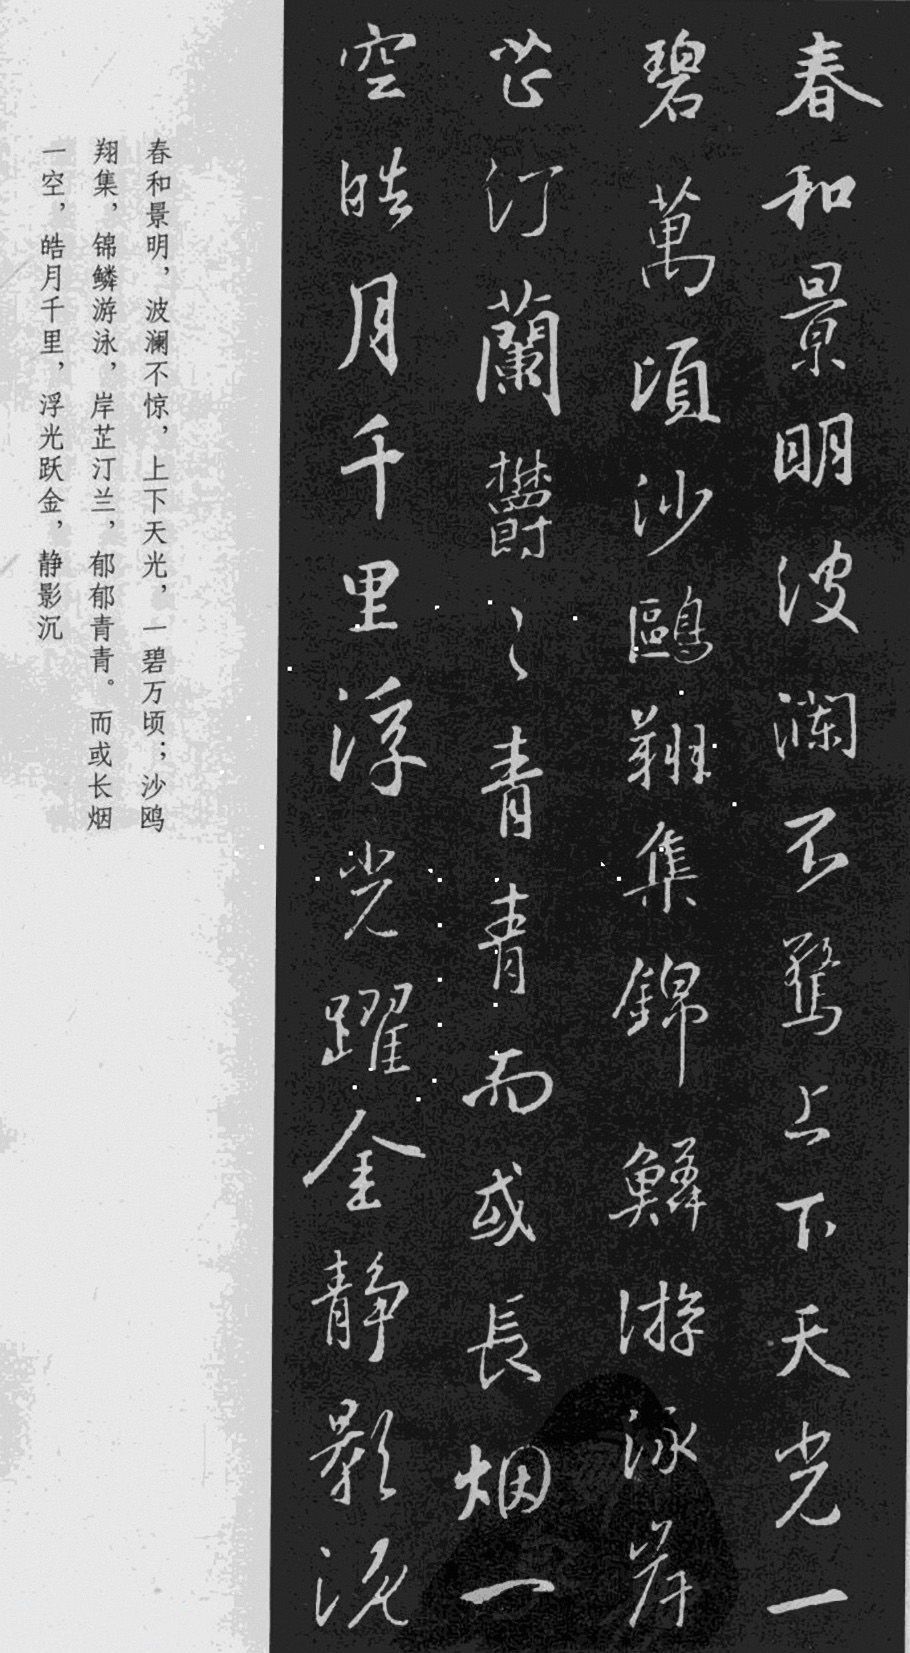 春和景明波瀾不驚上下天光一
碧萬頃沙鷗翔集錦鱗游泳岸
芷汀蘭欝〻青青而或長烟一
空皓月千里浮光躍金靜影沉
春和景明，波澜不惊，上下天光，一碧万顷；沙鸥
翔集，锦鳞游泳，岸芷汀兰，郁郁青青。而或长烟
一空，皓月千里，浮光跃金，静影沉